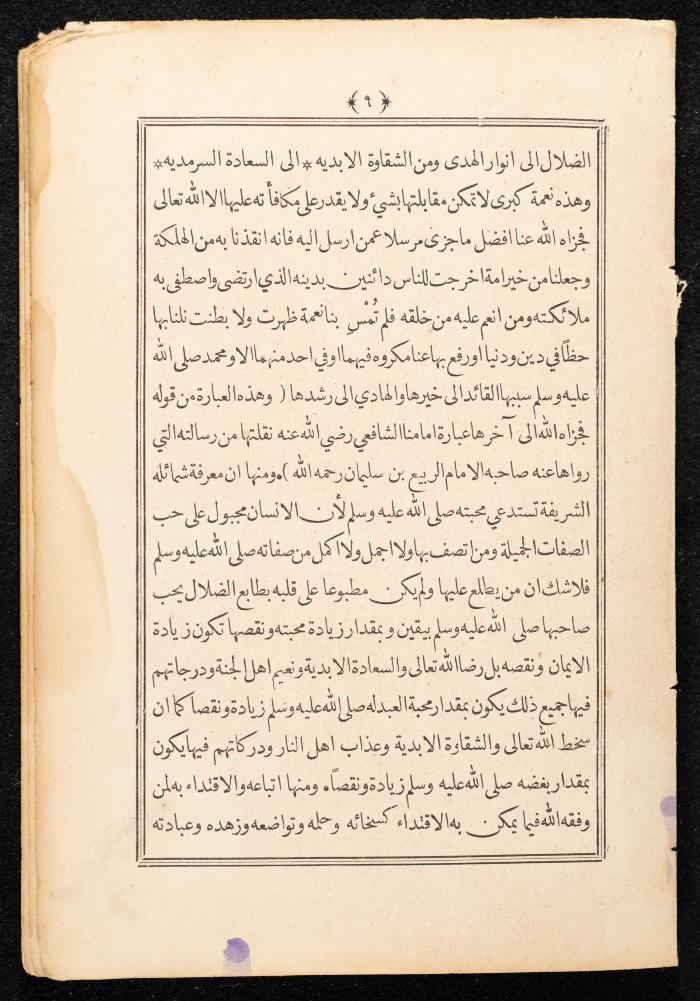 ﴿ ٩ ﴾
الضلال الى انوار الهدى ومن الشقاوة الابديه * الى السعادة السرمديه *
وهذه نعمة كبرى لا تمكن مقابلتها بشيء ولا يقدر على مكافأته عليها الا الله تعالى
فجزاه الله عنا افضل ما جزى مرسلا عمن ارسل اليه فانه انقذنا به من الهلكة
وجعلنا من خير امة اخرجت للناس دائنين بدينه الذي ارتضى واصطفى به
ملائكته ومن انعم عليه من خلقه فلم تُمْسِ بنا نعمة ظهرت ولا بطنت نلنا بها
حظاً في دين ودنيا او رفع بها عنا مكروه فيهما او في احد منهما الا ومحمد صلى الله
عليه وسلم سببها القائد الى خيرها والهادي الى رشدها ( وهذه العبارة من قوله
فجزاه الله الى آخرها عبارة امامنا الشافعي رضي الله عنه نقلتها من رسالته التي
رواها عنه صاحبه الامام الربيع بن سليمان رحمه الله ). ومنها ان معرفة شمائله
الشريفة تستدعي محبته صلى الله عليه وسلم لأن الانسان مجبول على حب
الصفات الجميلة ومن اتصف بها ولا اجمل ولا اكمل من صفاته صلى الله عليه وسلم
فلا شك ان من يطلع عليها ولم يكن مطبوعا على قلبه بطابع الضلال يحب
صاحبها صلى الله عليه وسلم بيقين وبمقدار زيادة محبته ونقصها تكون زيادة
الايمان ونقصه بل رضا الله تعالى والسعادة الابدية ونعيم اهل الجنة ودرجاتهم
فيها جميع ذلك يكون بمقدار محبة العبد له صلى الله عليه وسلم زيادة ونقصا كما ان
سخط الله تعالى والشقاوة الابدية وعذاب اهل النار ودركاتهم فيها يكون
بمقدار بغضه صلى الله عليه وسلم زيادة ونقصاً. ومنها اتباعه والاقتداء به لمن
وفقه الله فيما يمكن به الاقتداء كسخائه وحلمه وتواضعه وزهده وعبادته